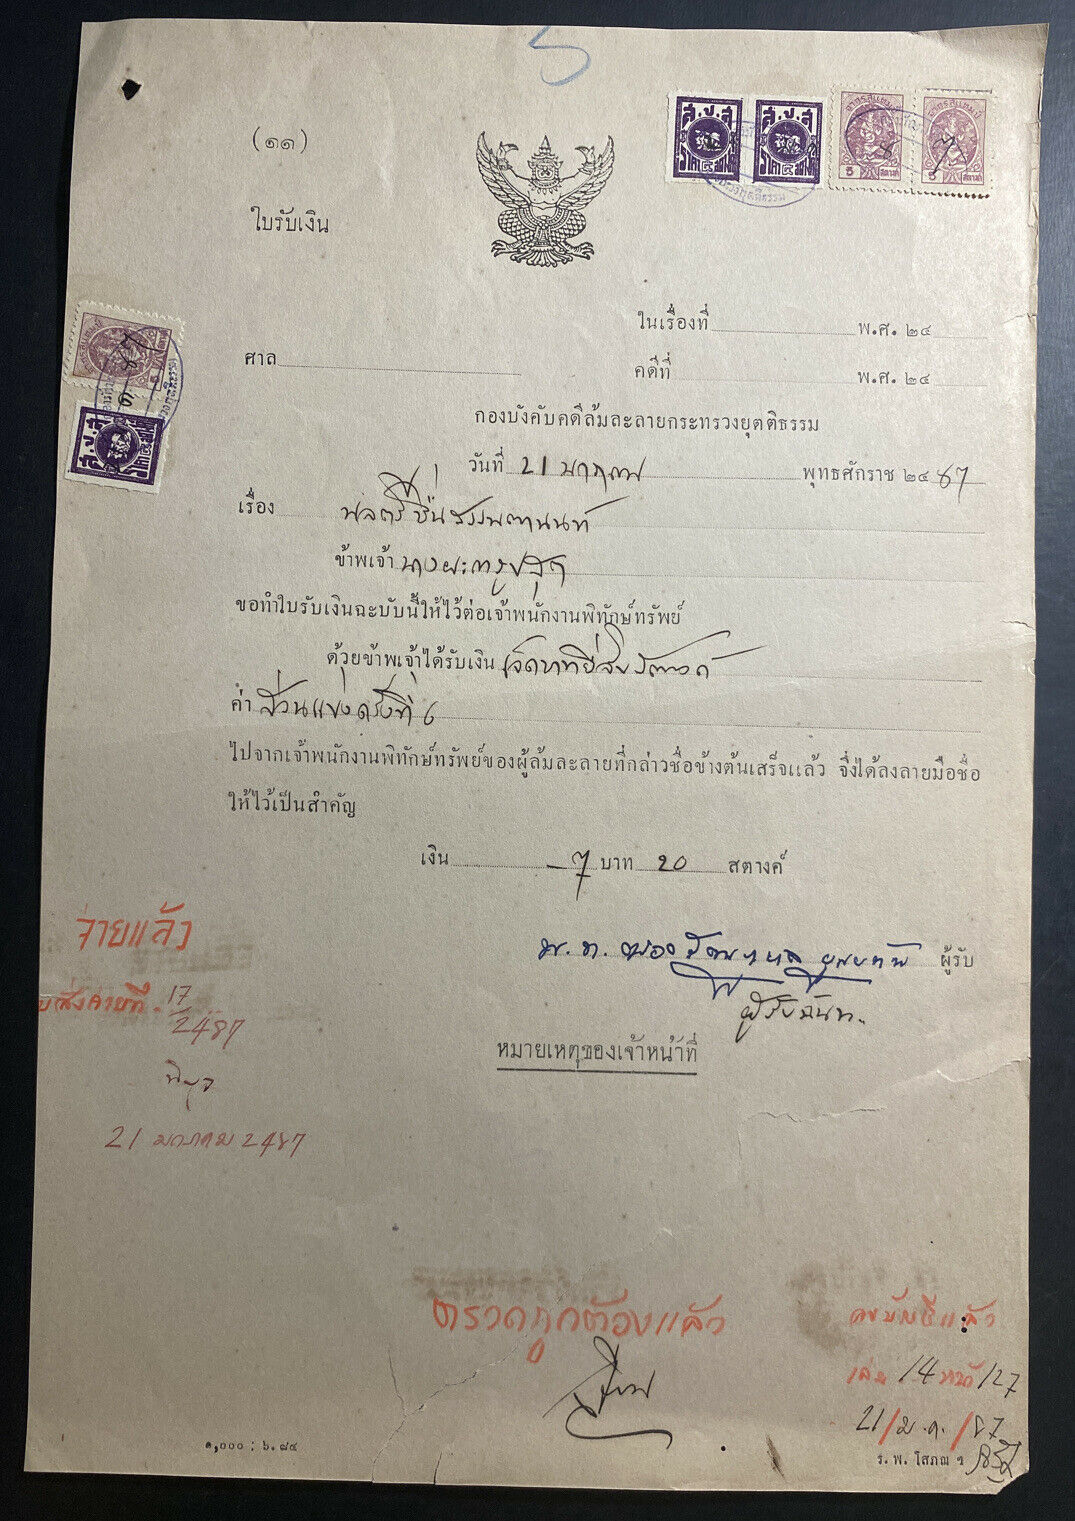 (๑๑)
ใบรับเงิน
ในเรื่องที่ พ.ศ. ๒๔
ศาล คดีที่ พ.ศ. ๒๔
กองบังคับคดีล้มละลายกระทรวงยุตติธรรม
วันที่ 21 มกราคม พุทธศักราช ๒๔ 87
เรื่อง
ข้าพเจ้า
ขอทำใบรับเงินฉะบับนี้ให้ไว้ต่อเจ้าพนักงานพิทักษ์ทรัพย์
ด้วยข้าพเจ้าได้รับเงิน เจ็ดบาทยี่สิบสตางค์
ค่า ส่วนแบ่งครั้งที่ 6
ไปจากเจ้าพนักงานพิทักษ์ทรัพย์ของผู้ล้มละลายที่กล่าวชื่อข้างต้นเสร็จแล้ว จึ่งได้ลงลายมือชื่อ
ให้ไว้เป็นสำคัญ
เงิน — 7 บาท 20 สตางค์
ผู้รับ
ผู้รับฉันท.
หมายเหตุของเจ้าหน้าที่
จ่ายแล้ว
ใบสั่งจ่ายที่ 17/2487
21 มกราคม 2487
ตรวจถูกต้องแล้ว
ลงบัญชีแล้ว
เล่ม 14 หน้า 127
21/ม.ค./87
๑,๐๐๐ : ๖. ๘๔
ร. พ. โสภณ ฯ